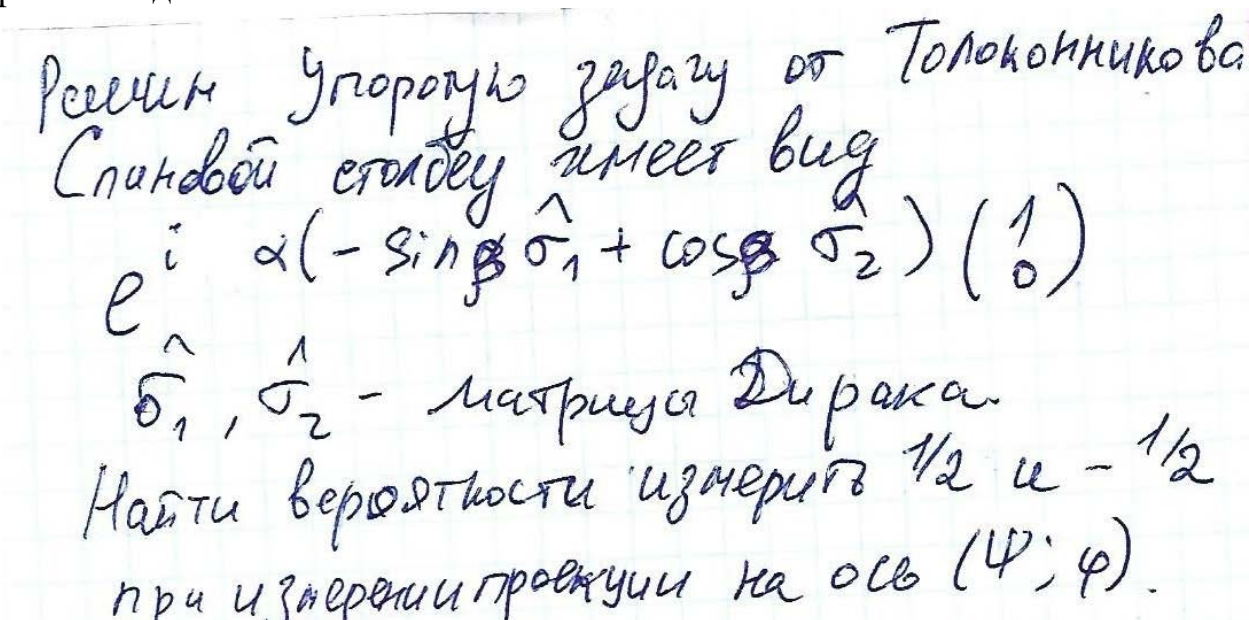 Решим Упоротую задачу от Толоконникова
Спиновой столбец имеет вид
e^{i α(-sinβ σ̂₁ + cosβ σ̂₂)} (1 0)
σ̂₁, σ̂₂ - матрицы Дирака.
Найти вероятности измерить 1/2 и -1/2
при измерении проекции на ось (Ψ; φ).